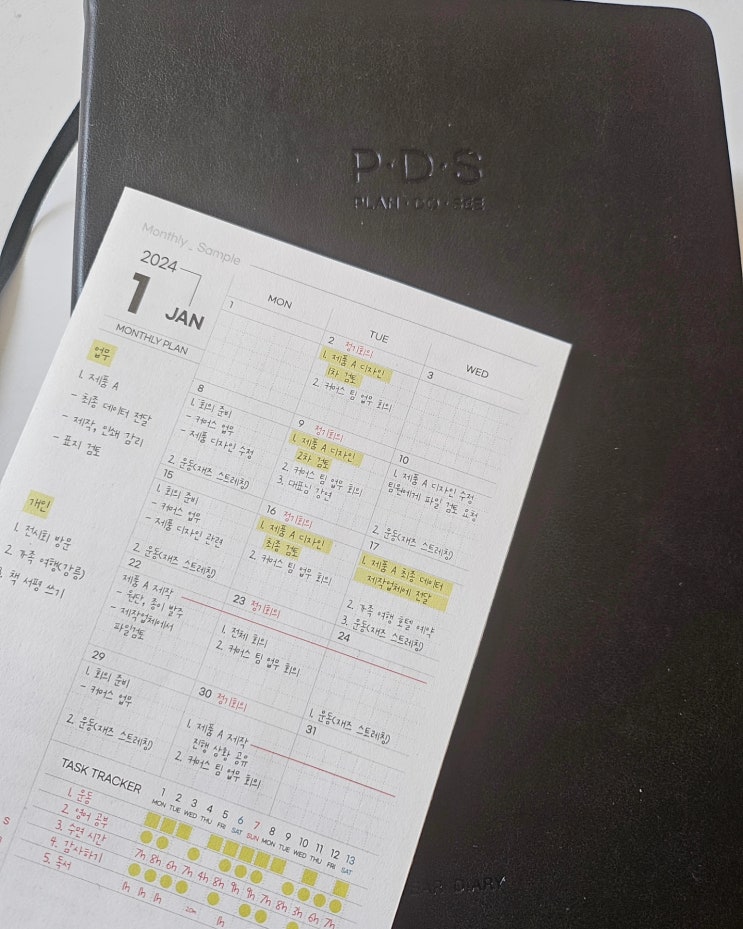 P·D·S
PLAN·DO·SEE
Monthly_ Sample
2024
1 JAN
MONTHLY PLAN
업무
1. 제품 A
- 최종 데이터 전달
- 제작, 인쇄 감리
- 표지 검토
개인
1. 전시회 방문
2. 가족 여행(강릉)
3. 책 서평 쓰기
MON
TUE
WED
1
2 정기회의
1. 제품 A 디자인
1차 검토
2. 커머스 팀 업무 회의
3
8
1. 회의 준비
- 커머스 업무
- 제품 디자인 수정
2. 운동(재즈 스트레칭)
9 정기회의
1. 제품 A 디자인
2차 검토
2. 커머스 팀 업무 회의
3. 대표님 강연
10
1. 제품 A 디자인 수정
팀원에게 파일 검토 요청
2. 운동(재즈 스트레칭)
15
1. 회의 준비
- 커머스 업무
- 제품 디자인 관련
2. 운동(재즈 스트레칭)
16 정기회의
1. 제품 A 디자인
최종 검토
2. 커머스 팀 업무 회의
17
1. 제품 A 최종 데이터
제작업체에 전달
2. 가족 여행 호텔 예약
3. 운동(재즈 스트레칭)
22
제품 A 제작
- 원단, 종이 발주
- 제작업체에서
파일검토
23 정기회의
1. 전체 회의
2. 커머스 팀 업무 회의
24
1. 운동(재즈 스트레칭)
29
1. 회의 준비
- 커머스 업무
2. 운동(재즈 스트레칭)
30 정기회의
1. 제품 A 제작
진행 상황 공유
2. 커머스 팀 업무 회의
31
TASK TRACKER
1 2 3 4 5 6 7 8 9 10 11 12 13
MON TUE WED THU FRI SAT SUN MON TUE WED THU FRI SAT
1. 운동
2. 영어 공부
3. 수면 시간
7h 8h 6h 7h 4h 8h 9h 9h 7h 8h 3h 6h 7h
4. 감사하기
5. 독서
1h 1h 1h 20m 1h
DIARY